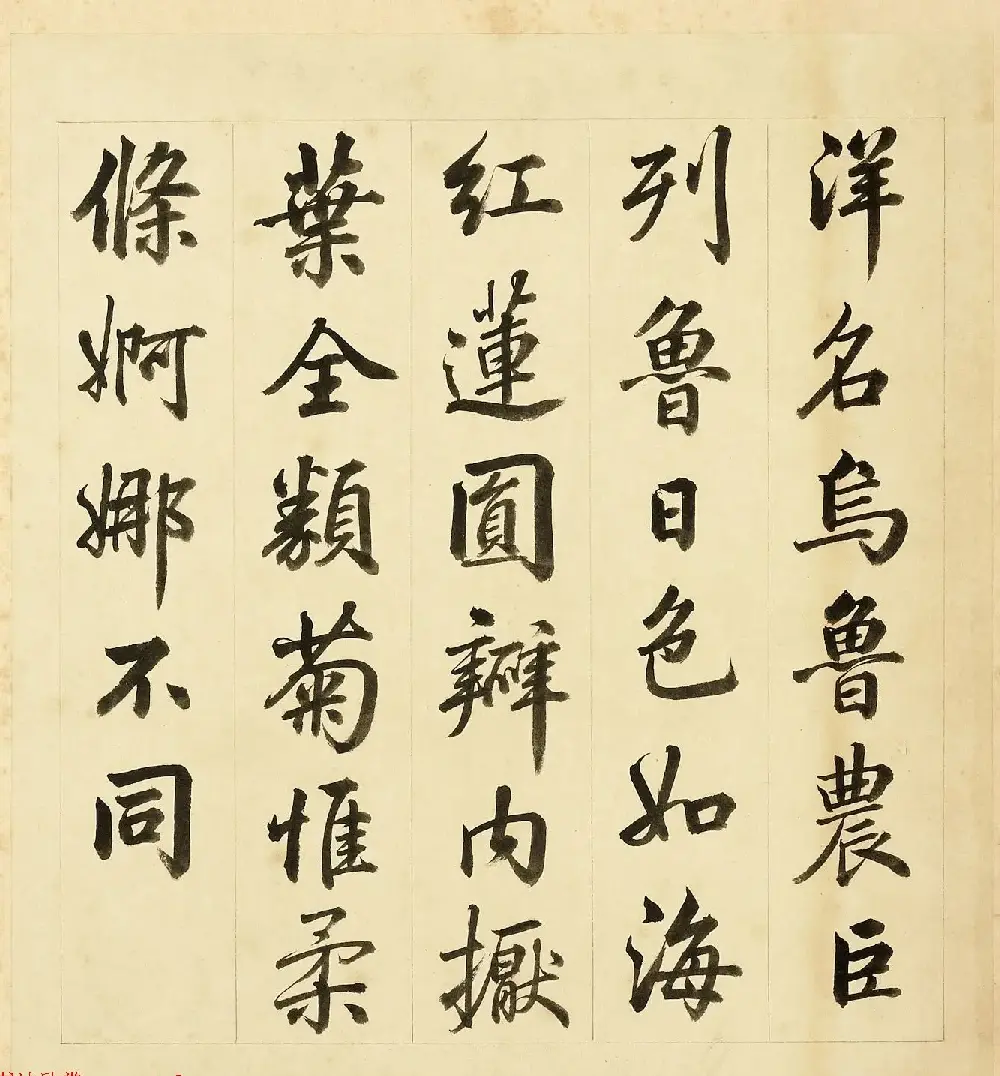 洋名烏魯農臣
列魯日色如海
紅蓮圓瓣内擫
葉全類菊惟柔
條婀娜不同